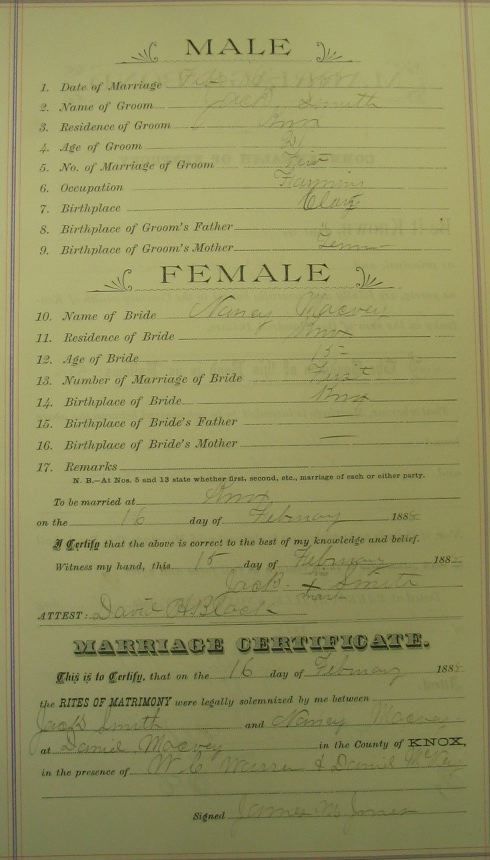 MALE
1. Date of Marriage
2. Name of Groom Jack Smith
3. Residence of Groom Knox
4. Age of Groom
5. No. of Marriage of Groom First
6. Occupation Farming
7. Birthplace Clay
8. Birthplace of Groom's Father
9. Birthplace of Groom's Mother Tenn
FEMALE
10. Name of Bride Nancy Macvey
11. Residence of Bride Knox
12. Age of Bride 15
13. Number of Marriage of Bride First
14. Birthplace of Bride Knox
15. Birthplace of Bride's Father —
16. Birthplace of Bride's Mother —
17. Remarks
N. B.—At Nos. 5 and 13 state whether first, second, etc., marriage of each or either party.
To be married at Knox
on the 16 day of February 188
I Certify that the above is correct to the best of my knowledge and belief.
Witness my hand, this 15 day of February 188
his
Jack X Smith
mark
ATTEST: David H Black
MARRIAGE CERTIFICATE.
This is to Certify, that on the 16 day of February 188
the RITES OF MATRIMONY were legally solemnized by me between
Jack Smith and Nancy Macvey
at Daniel Macvey in the County of KNOX,
in the presence of W. C & Daniel McVey
Signed James M Jones